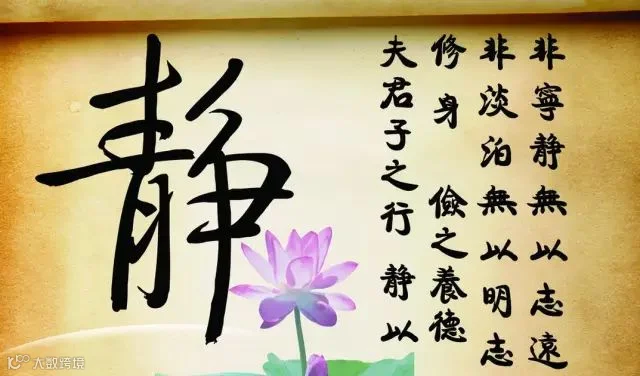 静
夫君子之行 静以
修身 儉之養德
非淡泊無以明志
非寧静無以志遠
大数跨境